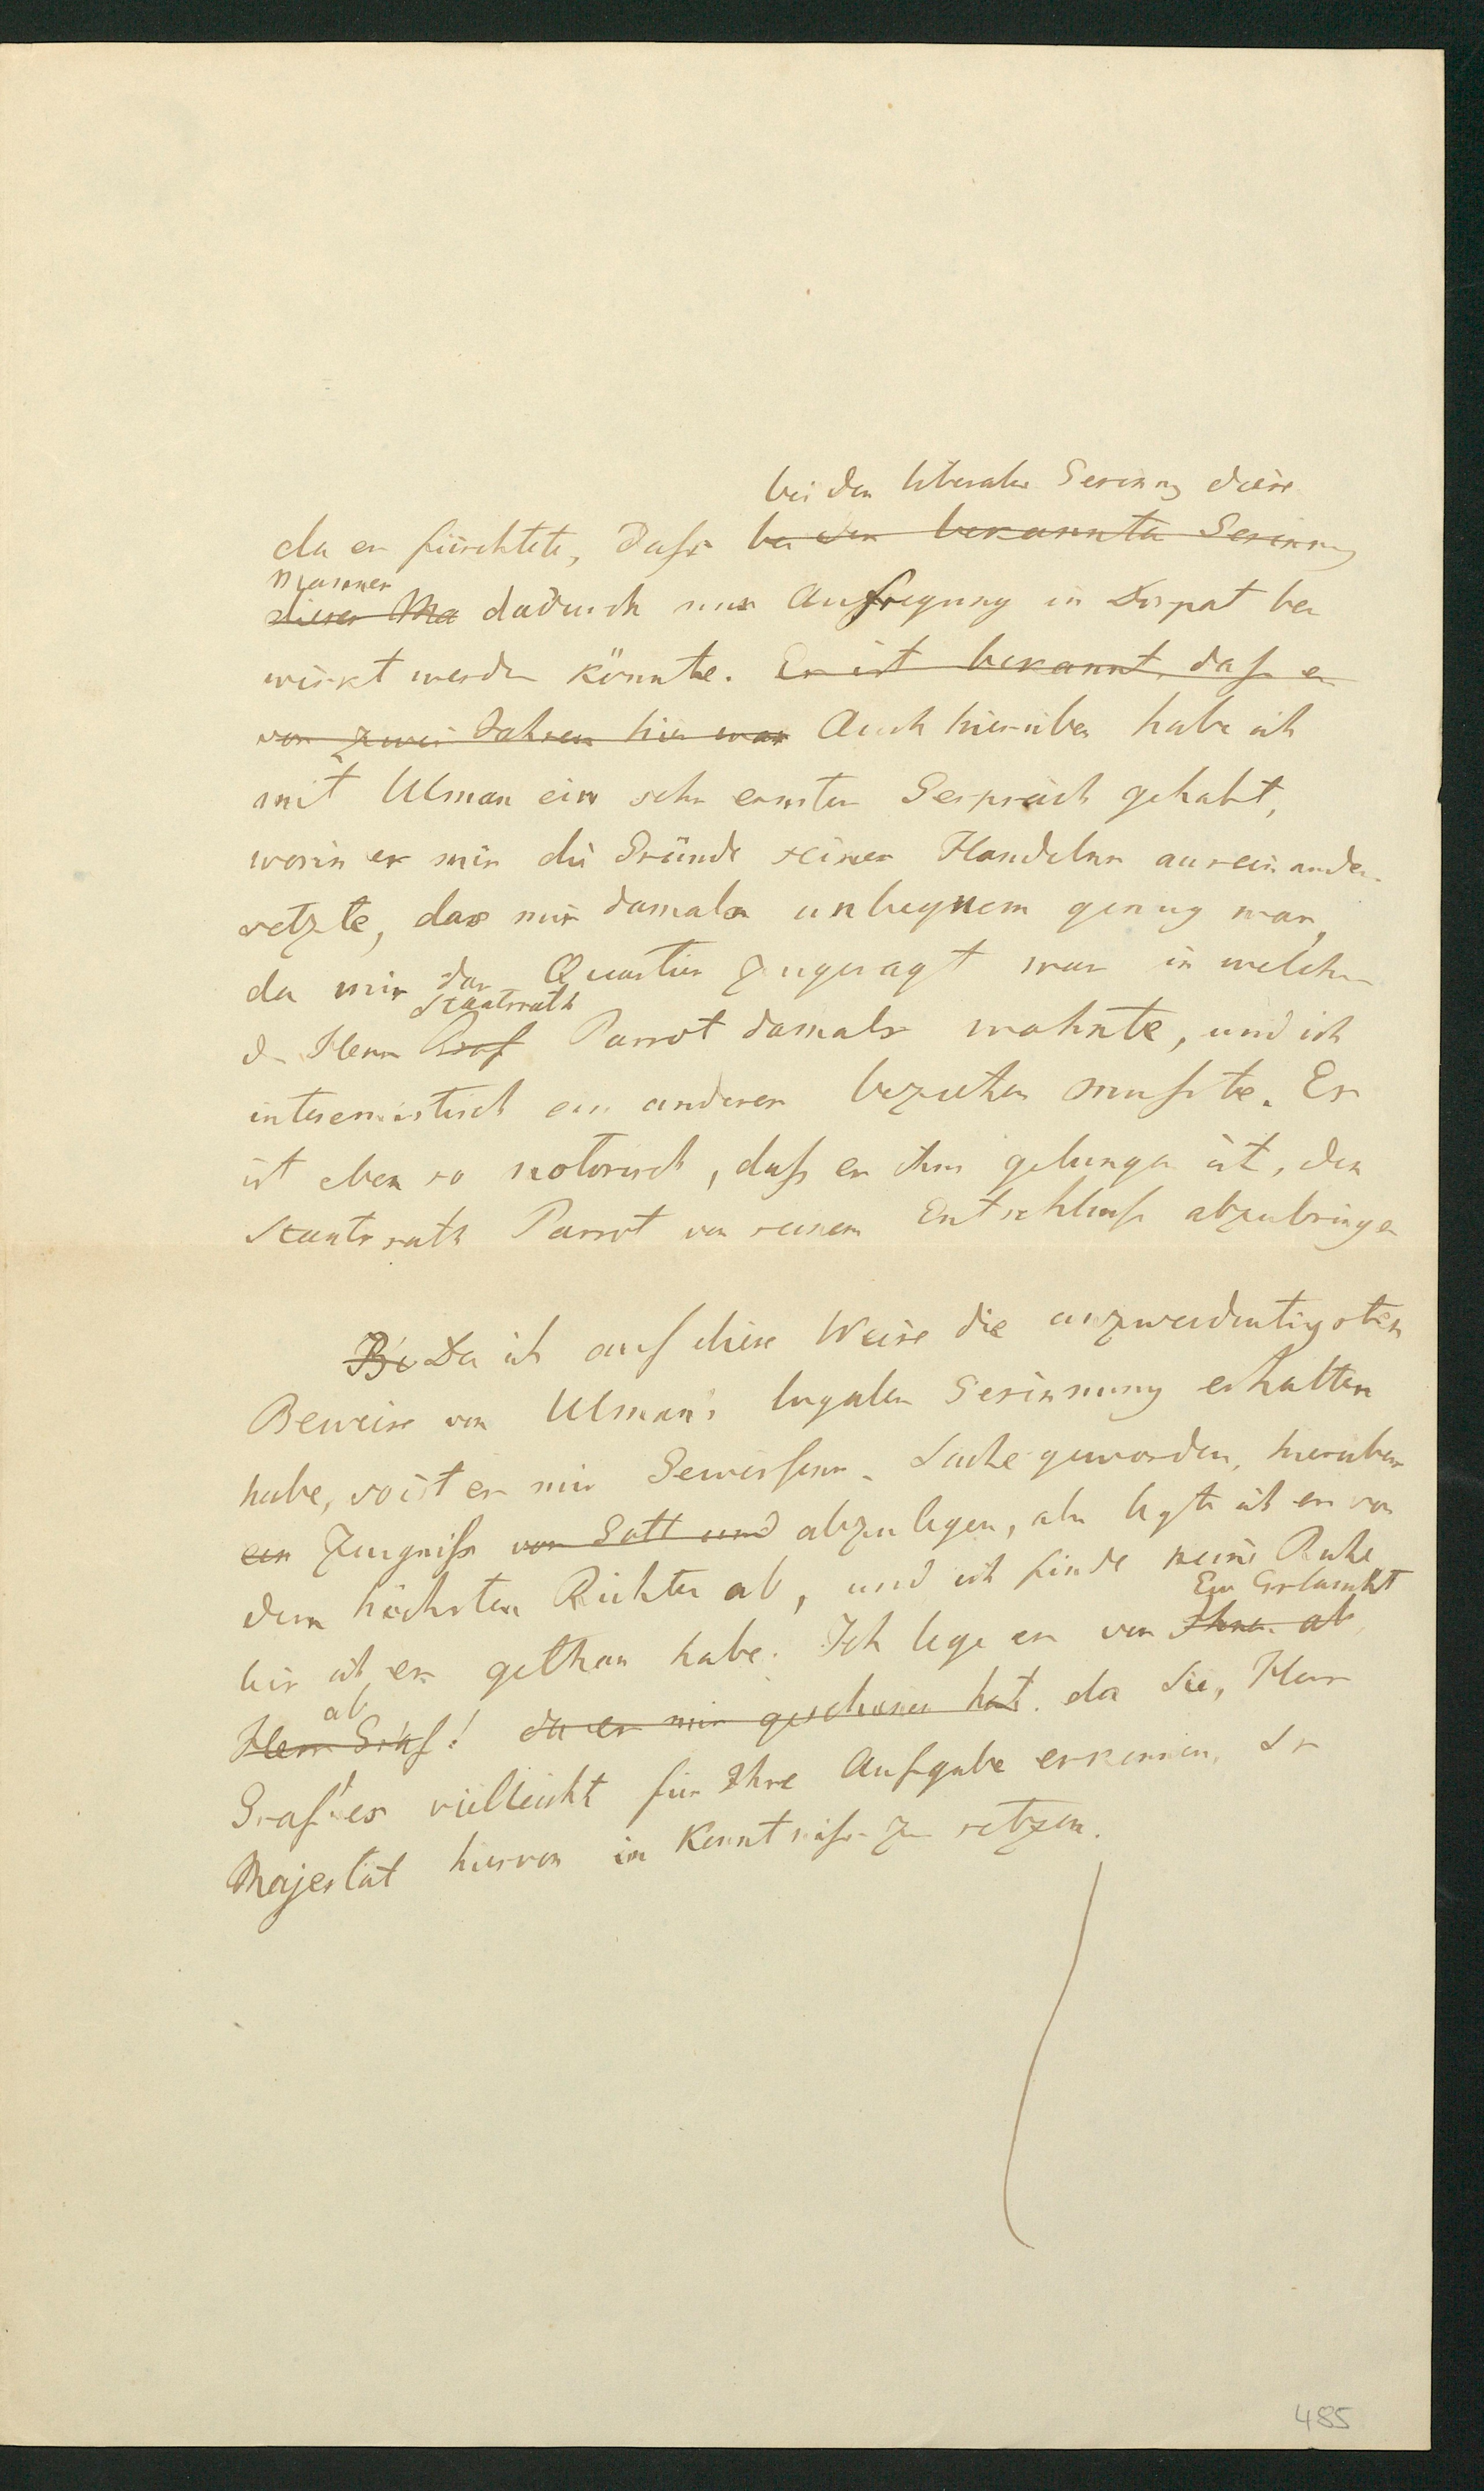 bei der liberalen Gesinnung dieses
da er fürchtete, dass bei der bekannten Gesinnung
Mannes
dieses Ma dadurch nur Aufregung in Dorpat be
wirkt werden könnte. Es ist bekannt, dass er
vor zwei Jahren hier war Auch hierüber habe ich
mit Ulman ein sehr ernstes Gespräch gehabt,
worin er mir die Gründe seines Handelns auseinander-
setzte, das mir damals unbequem genug war,
da mir das Quartier zugesagt war in welchem
Staatsrath
der Herr Prof Parrot damals wohnte, und ich
interemistisch ein anderes beziehen musste. Es
ist eben so notorisch, dass es ihm gelungen ist, den
Staatsrath Parrot von seinem Entschluss abzubringen
Bi Da ich auf diese Weise die unzweideutigsten
Beweise von Ulman's legalen Gesinnung erhalten
habe, so ist es mir Gewissens-Sache geworden, hierüber
ein Zeugniss vor Gott und abzulegen, als legte ich es vor
dem höchsten Richter ab, und ich finde keine Ruhe
Ew Erlaucht
bis ich es gethan habe. Ich lege es vor Ihnen ab
ab
Herr Graf! da es mir geschienen hat. da Sie, Herr
Graf! es vielleicht für Ihre Aufgabe erkennen, Sr
Majestät hiervon in Kenntniss zu setzen.
485